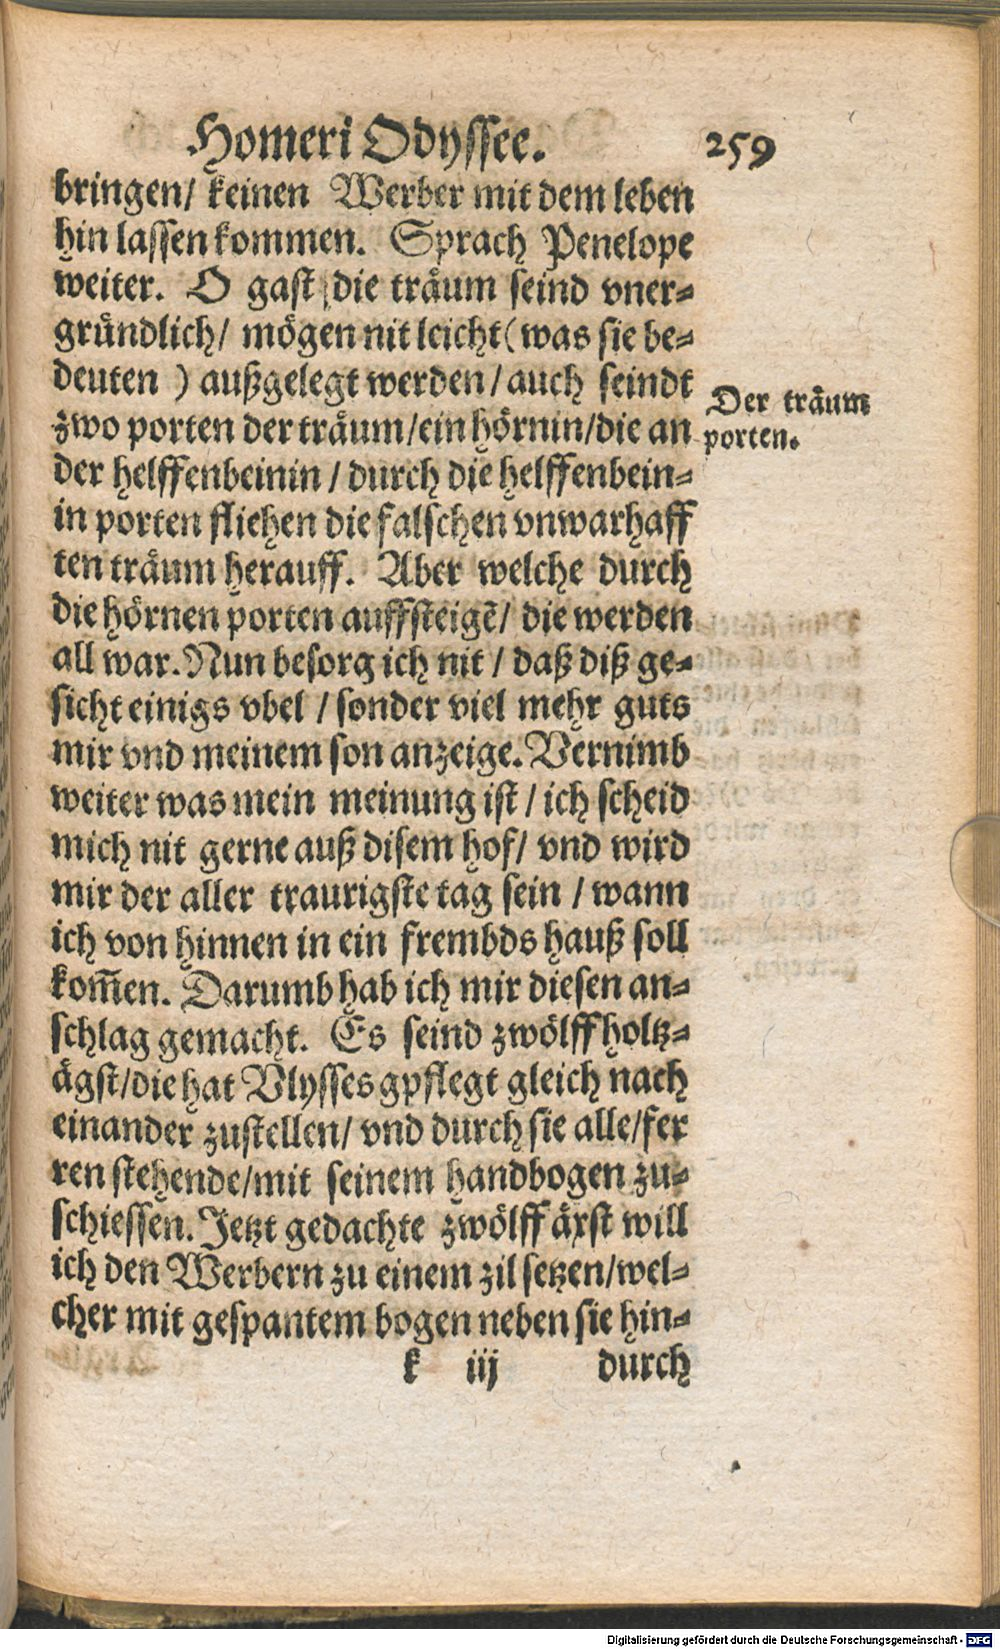 Homeri Odyssee. 259
bringen/ keinen Werber mit dem leben
hin lassen kommen. Sprach Penelope
weiter. O gast die träum seind vner-
gründlich/ mögen nit leicht (was sie be-
deuten ) außgelegt werden / auch seindt
zwo porten der träum/ein hörnin/die an
der helffenbeinin / durch die helffenbein-
in porten fliehen die falschen vnwarhaff
ten träum herauff. Aber welche durch
die hörnen porten auffsteigẽ/ die werden
all war. Nun besorg ich nit / daß diß ge-
sicht einigs vbel / sonder viel mehr guts
mir vnd meinem son anzeige. Vernimb
weiter was mein meinung ist / ich scheid
mich nit gerne auß disem hof/ vnd wird
mir der aller traurigste tag sein / wann
ich von hinnen in ein frembds hauß soll
kom̃en. Darumb hab ich mir diesen an-
schlag gemacht. Es seind zwölff holtz-
ägst/die hat Vlysses gpflegt gleich nach
einander zustellen/ vnd durch sie alle/fer
ren stehende/mit seinem handbogen zu-
schiessen. Jetzt gedachte zwölff äxst will
ich den Werbern zu einem zil setzen/wel-
cher mit gespantem bogen neben sie hin-
k iij durch
Der träum
porten.
Digitalisierung gefördert durch die Deutsche Forschungsgemeinschaft - DFG